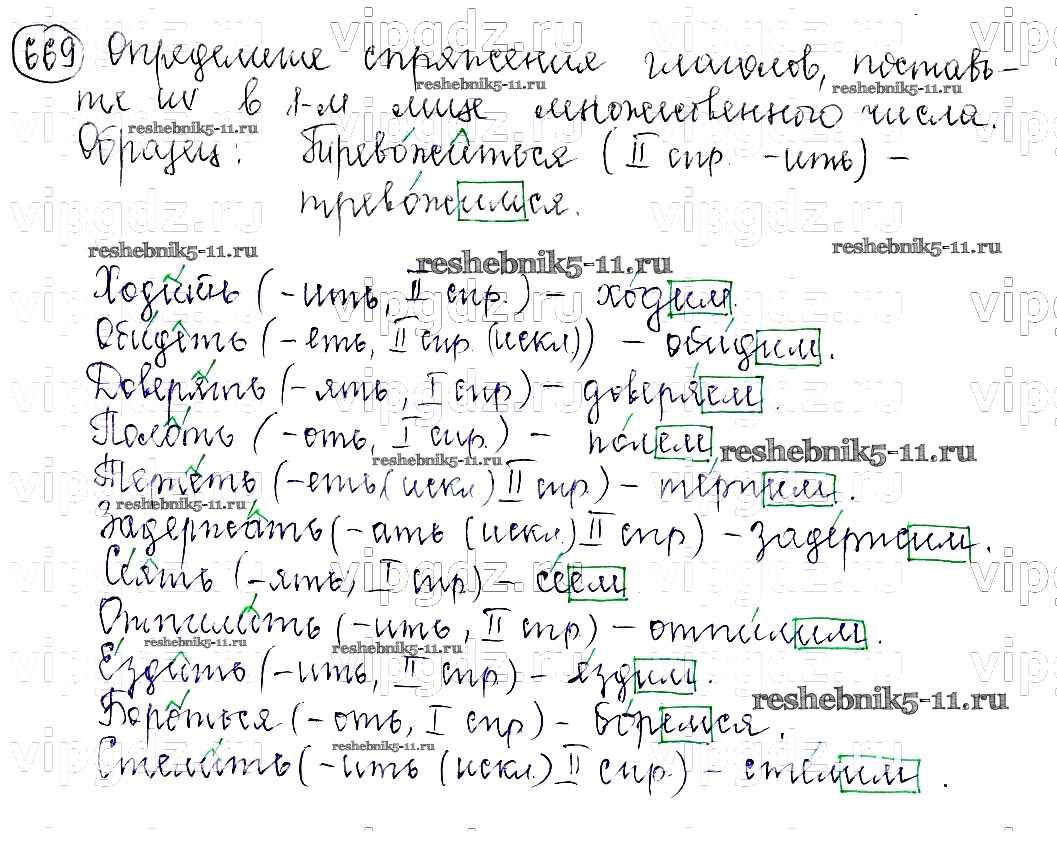 669 Определите спряжения глаголов, поставь-
те их в 1-м лице множественного числа.
Образец: Тревожиться (II спр. -ить) -
тревожимся.
Ходить (-ить, II спр.) - ходим.
Обидеть (-еть, II спр. (искл)) - обидим.
Доверять (-ять, I спр) - доверяем.
Полоть (-оть, I спр.) - полем
Терпеть (-еть (искл) II спр.) - терпим.
Задержать (-ать (искл.) II спр) - задержим.
Сеять (-ять, I спр) - сеем
Отпилить (-ить, II спр) - отпилим.
Ездить (-ить, II спр) - ездим.
Бороться (-оть, I спр) - боремся.
Стелить (-ить (искл.) II спр.) - стелим.
vipgdz.ru
reshebnik5-11.ru